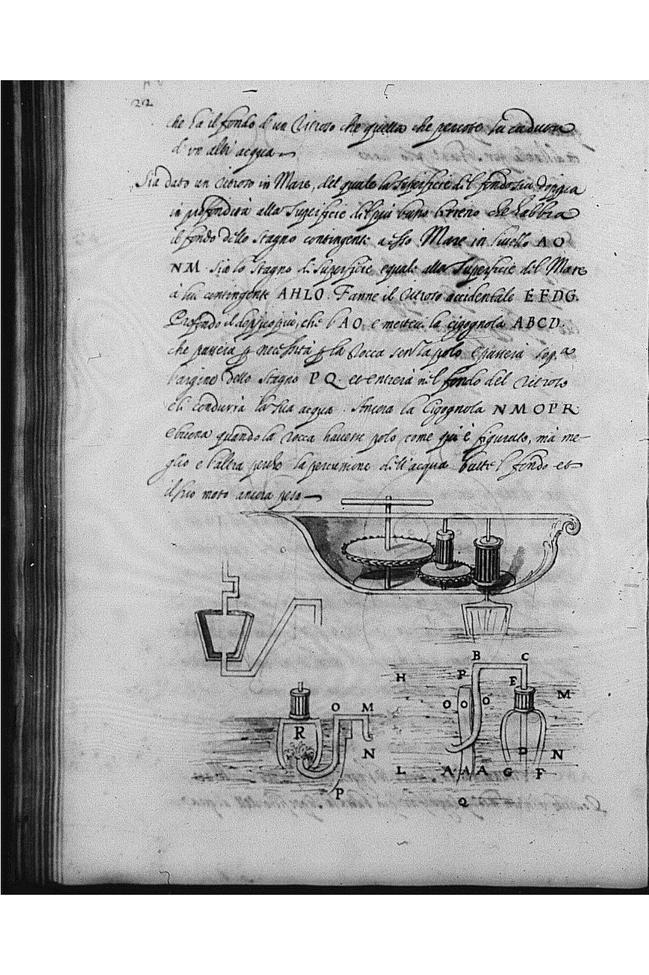 22
che fa il fondo d'un Retroso che quella che percote la caduta
d'un altr' acqua
Sia dato un Retroso in Mare, del quale la superficie del fondo sia doppia
in profondità alla superficie del più basso terreno che habbia
il fondo dello stagno contingente a esso Mare in livello A O
N M. Sia lo stagno di superficie equale alla superficie del Mare
à lui contingente A H L O. Fanne il Retroso accidentale E F D G.
Profondo il doppio più, che l'A O. e mettivi la cigognola A B C D
che passerà necessità la Rocca senza polo e passerà sopra
l'argine dello stagno P Q. et entrerà nel fondo del Retroso
e li condurrà la sua acqua. Ancora la Cigognola N M O P R
è buona quando la rocca havesse polo come qui è figurato, ma me-
glio è l'altra perche la percussione dell'acqua batte l fondo et
il suo moto ancora peso
B C
H P E
O M O O M
R
N D N
L A A A G F
P
Q